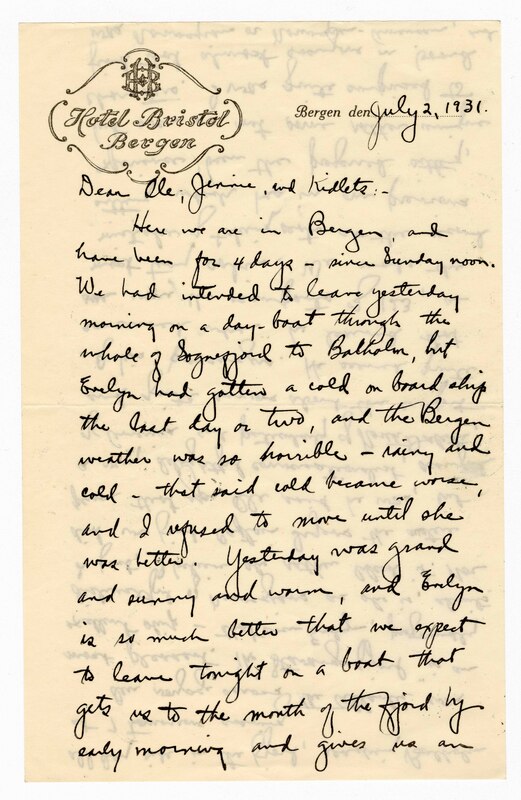 HB
Hotel Bristol
Bergen
Bergen den July 2, 1931.
Dear Ole, Jennie, and Kidlets:-
Here we are in Bergen, and
have been for 4 days - since Sunday noon.
We had intended to leave yesterday
morning on a day-boat through the
whole of Sognefjord to Balholm, but
Evelyn had gotten a cold on board ship
the last day or two, and the Bergen
weather was so horrible - rainy and
cold - that said cold became worse,
and I refused to move until she
was better. Yesterday was grand
and sunny and warm, and Evelyn
is so much better that we expect
to leave tonight on a boat that
gets us to the mouth of the fjord by
early morning and gives us an